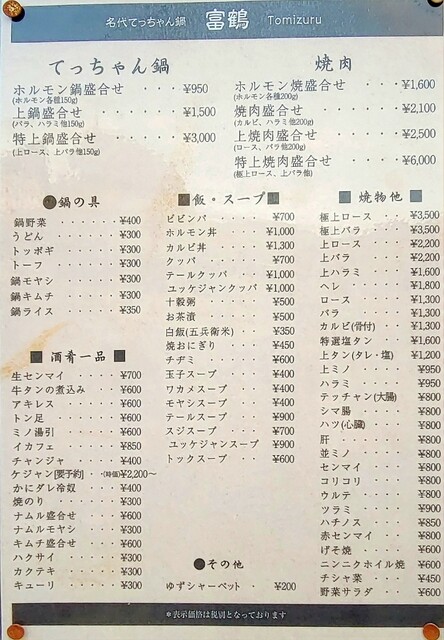 名代てっちゃん鍋 富鶴 Tomizuru
てっちゃん鍋
ホルモン鍋盛合せ ・・・ ¥950
(ホルモン各種150g)
上鍋盛合せ ・・・・ ¥1,500
(バラ、ハラミ他150g)
特上鍋盛合せ ・・・ ¥3,000
(上ロース、上バラ他150g)
焼肉
ホルモン焼盛合せ ・・・ ¥1,600
(ホルモン各種200g)
焼肉盛合せ ・・・・・ ¥2,100
(カルビ、ハラミ他200g)
上焼肉盛合せ ・・・・ ¥2,500
(ロース、バラ他200g)
特上焼肉盛合せ ・・・ ¥6,000
(極上ロース、上バラ他)
鍋の具
鍋野菜 ・・・・・ ¥400
うどん ・・・・・ ¥300
トッポギ ・・・・ ¥300
トーフ ・・・・・ ¥300
鍋モヤシ ・・・・ ¥300
鍋キムチ ・・・・ ¥300
鍋ライス ・・・・ ¥350
酒肴一品
生センマイ ・・・・ ¥700
牛タンの煮込み ・・・ ¥600
アキレス ・・・・・ ¥600
トン足 ・・・・・・ ¥600
ミノ湯引 ・・・・・ ¥600
イカフェ ・・・・・ ¥850
チャンジャ ・・・・ ¥400
ケジャン[要予約] ・・(時価)¥2,200〜
かにダレ冷奴 ・・・ ¥400
焼のり ・・・・・・ ¥300
ナムル盛合せ ・・・ ¥600
ナムルモヤシ ・・・ ¥300
キムチ盛合せ ・・・ ¥600
ハクサイ ・・・・・ ¥300
カクテキ ・・・・・ ¥300
キューリ ・・・・・ ¥300
飯・スープ
ビビンバ ・・・・・ ¥700
ホルモン丼 ・・・・ ¥1,000
カルビ丼 ・・・・・ ¥1,300
クッパ ・・・・・・ ¥700
テールクッパ ・・・ ¥1,000
ユッケジャンクッパ ・ ¥1,000
十穀粥 ・・・・・・ ¥500
お茶漬 ・・・・・・ ¥500
白飯(五兵衛米) ・・・ ¥350
焼おにぎり ・・・・ ¥450
チヂミ ・・・・・・ ¥600
玉子スープ ・・・・ ¥400
ワカメスープ ・・・ ¥400
モヤシスープ ・・・ ¥400
テールスープ ・・・ ¥900
スジスープ ・・・・ ¥700
ユッケジャンスープ ・ ¥900
トックスープ ・・・ ¥600
その他
ゆずシャーベット ・ ¥200
焼物他
極上ロース ・・・・ ¥3,500
極上バラ ・・・・・ ¥3,500
上ロース ・・・・・ ¥2,200
上バラ ・・・・・・ ¥2,200
上ハラミ ・・・・・ ¥1,600
ヘレ ・・・・・・・ ¥1,800
ロース ・・・・・・ ¥1,300
バラ ・・・・・・・ ¥1,300
カルビ(骨付) ・・・ ¥1,300
特選塩タン ・・・・ ¥1,600
上タン(タレ・塩) ・ ¥1,200
上ミノ ・・・・・・ ¥950
ハラミ ・・・・・・ ¥950
テッチャン(大腸) ・・ ¥800
シマ腸 ・・・・・・ ¥800
ハツ(心臓) ・・・・ ¥800
肝 ・・・・・・・・ ¥800
並ミノ ・・・・・・ ¥800
センマイ ・・・・・ ¥800
コリコリ ・・・・・ ¥800
ウルテ ・・・・・・ ¥800
ツラミ ・・・・・・ ¥900
ハチノス ・・・・・ ¥850
赤センマイ ・・・・ ¥800
げそ焼 ・・・・・・ ¥600
ニンニクホイル焼 ・ ¥600
チシャ菜 ・・・・・ ¥450
野菜サラダ ・・・・ ¥600
＊表示価格は税別となっております